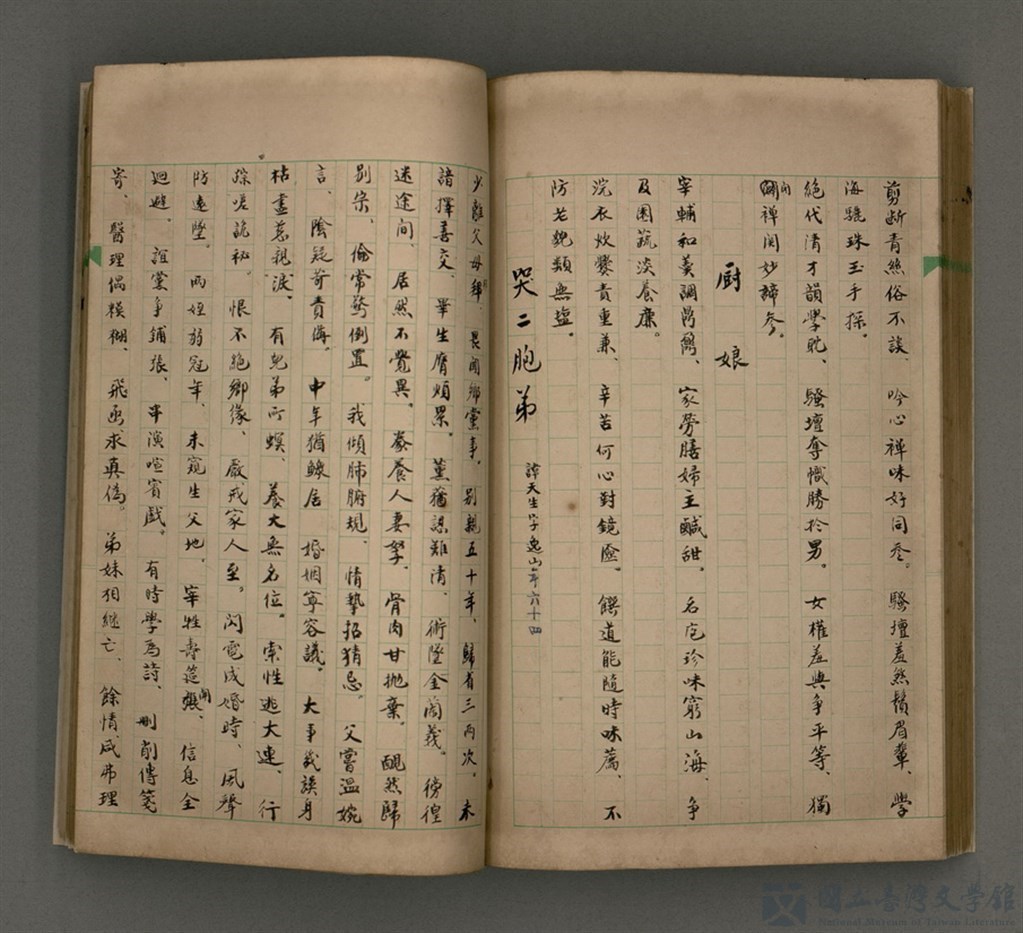 剪斷青絲俗不談、吟心禪味好同參。騷壇羞煞鬚眉輩、學
海驪珠玉手探。
絕代清才韻學耽、騷壇奪幟勝於男。女權羞與爭平等、獨
闢禪関妙諦參。
廚娘
宰輔和羹調鼎鼐、家勞膳婦主鹹甜。名庖珍味窮山海、争
及園蔬淡養廉。
浣衣炊爨責重兼、辛苦何心對鏡奩。饌道能隨時味薦、不
防老貌類無塩。
哭二胞弟 諱天生字逸山年六十四
少離父母鄉、畏聞鄉黨事。別親五十年、歸省三兩次。未
諳擇善交、畢生膺煩累。薰蕕認難清、術墜金蘭義。徬徨
迷途间、居然不覺異。豢養人妻孥、骨肉甘抛棄。靦然歸
別宗、倫常驚倒置。我傾肺腑規、情摯招猜忌。父嘗温婉
言、陰疑苛責偽。中年猶鰥居、婚姻寧容議。大事幾誤身
枯盡慈親淚。有兒弟所螟、養大無名位。索性逃大連、行
踪嗟詭秘。恨不絕鄉緣、嚴戒家人至。閃電成婚時、風聲
防速墜。兩姪弱冠年、未窺生父地。宰牲壽筵開、信息全
迴避。誼黨争鋪張、串演喧賓戲。有時學為詩、刪削傳箋
寄、醫理偶模糊、飛函求真偽。弟妹相繼亡、餘情咸弗理
國立臺灣文學館
National Museum of Taiwan Literature